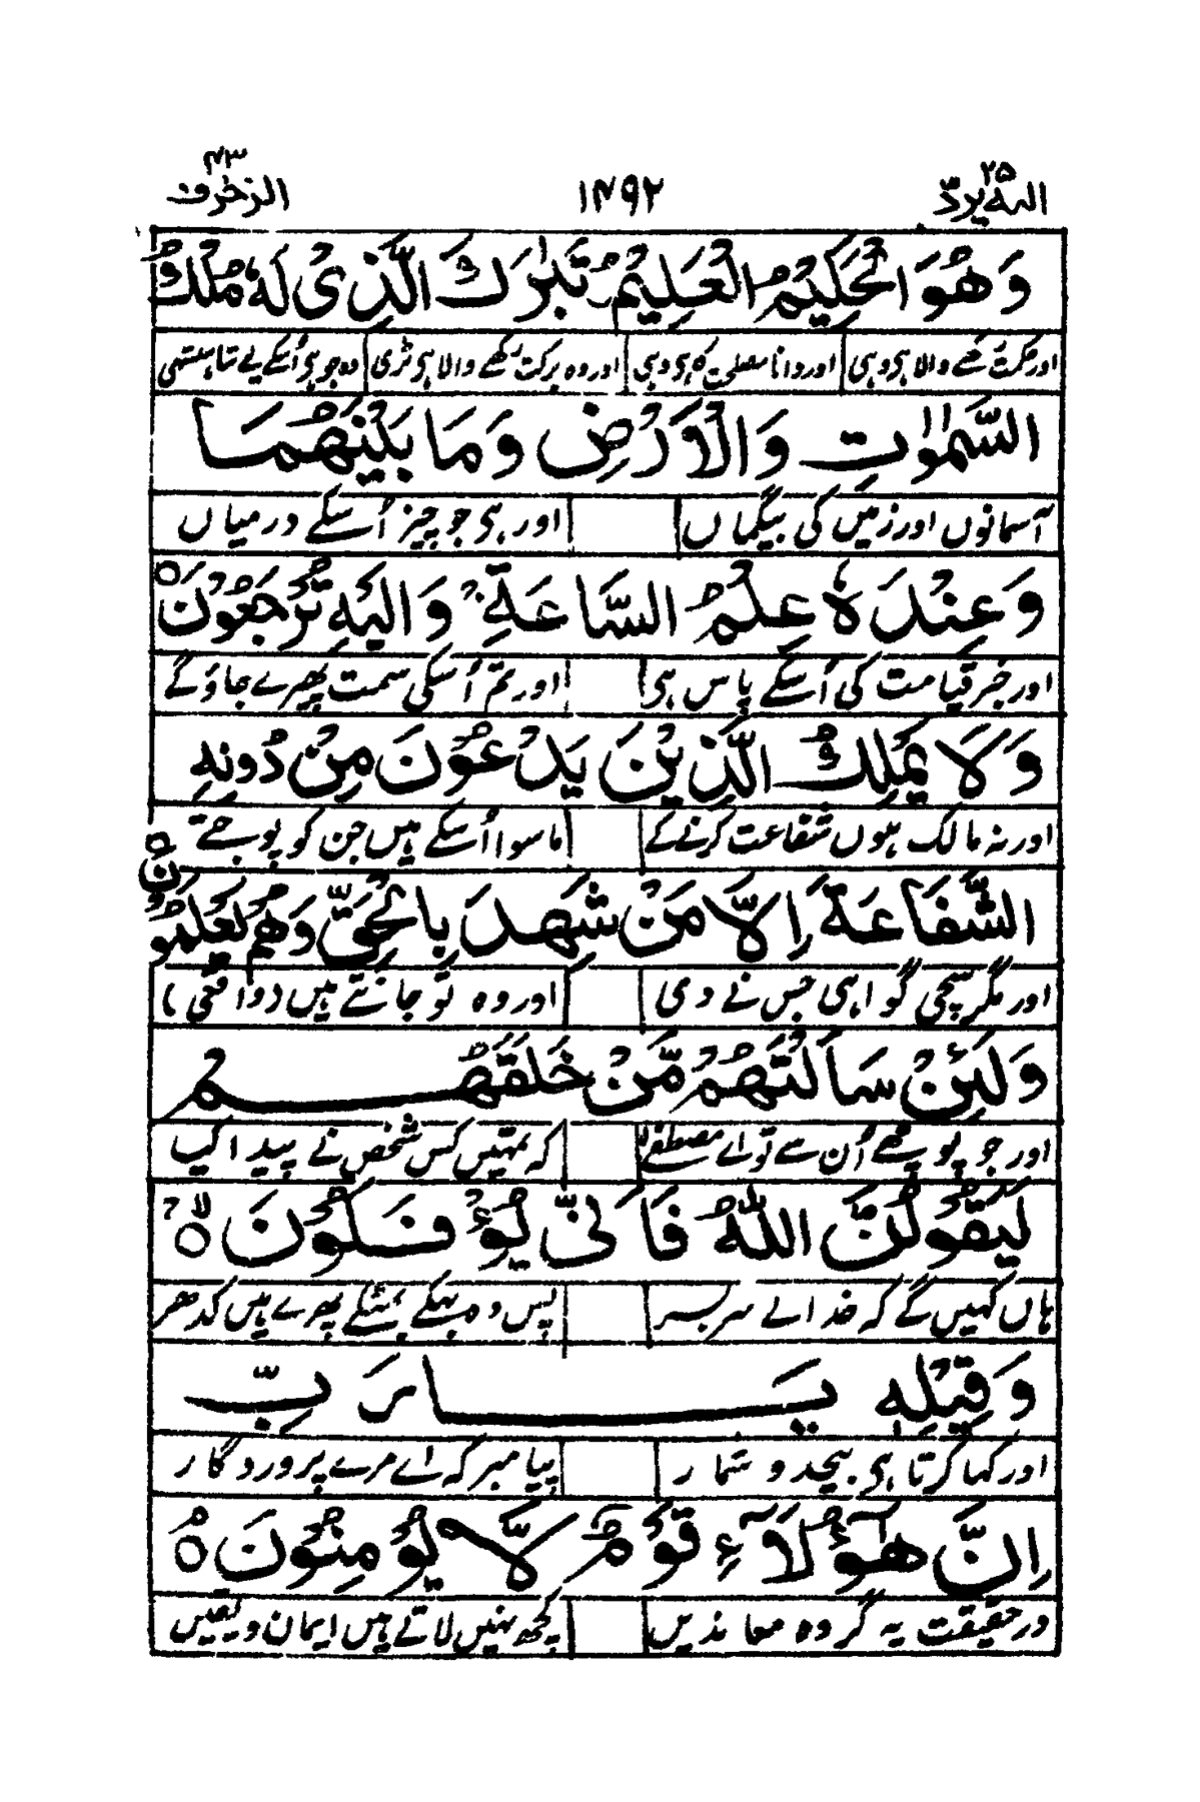 الیه یردّ ۲۵ ۱۴۹۲ الزخرف ۴۳
وَهُوَ الْحَكِیْمُ الْعَلِیْمُ تَبٰرَكَ الَّذِیْ لَهٗ مُلْكُ
اور حکمت رکھنے والا ہی وہی اور دانا مصلحت کا ہی وہی اور وہ برکت رکھنے والا ہی بڑی وہ جو ہی اُسکے لیے شاہنشہی
السَّمٰوٰتِ وَالْاَرْضِ وَمَا بَیْنَهُمَا
آسمانوں اور زمیں کی بیگماں اور ہی جو چیز اُسکے درمیاں
وَعِنْدَهٗ عِلْمُ السَّاعَةِ ۚ وَاِلَیْهِ تُرْجَعُوْنَ ۝
اور خبر قیامت کی اُسکے پاس ہی اور تم اُسکی سمت پھیرے جاؤ گے
وَلَا یَمْلِكُ الَّذِیْنَ یَدْعُوْنَ مِنْ دُوْنِهِ
اور نہ مالک ہوں شفاعت کرنے کے ماسوا اُسکے ہیں جن کو پوجتے
الشَّفَاعَةَ اِلَّا مَنْ شَهِدَ بِالْحَقِّ وَهُمْ یَعْلَمُوْنَ
اور مگر سچی گواہی جس نے دی اور وہ تو جانتے ہیں (واقعی)
وَلَىِٕنْ سَاَلْتَهُمْ مَّنْ خَلَقَهُمْ
اور جو پوچھے اُن سے تو اے مصطفےٰ کہ تمہیں کس شخص نے پیدا کیا
لَیَقُوْلُنَّ اللّٰهُ فَاَنّٰی یُؤْفَكُوْنَ ۝ۙ
ہاں کہیں گے کہ خدا نے سربسر پس وہ بہکے بھٹکے پھرے ہیں کدھر
وَقِیْلِهٖ یٰرَبِّ
اور کہا کرتا ہی بیحد و شمار پیامبر کہ اے مرے پروردگار
اِنَّ هٰۤؤُلَآءِ قَوْمٌ لَّا یُؤْمِنُوْنَ ۝
در حقیقت یہ گروہ معاندیں کچھ نہیں لاتے ہیں ایمان و یقیں